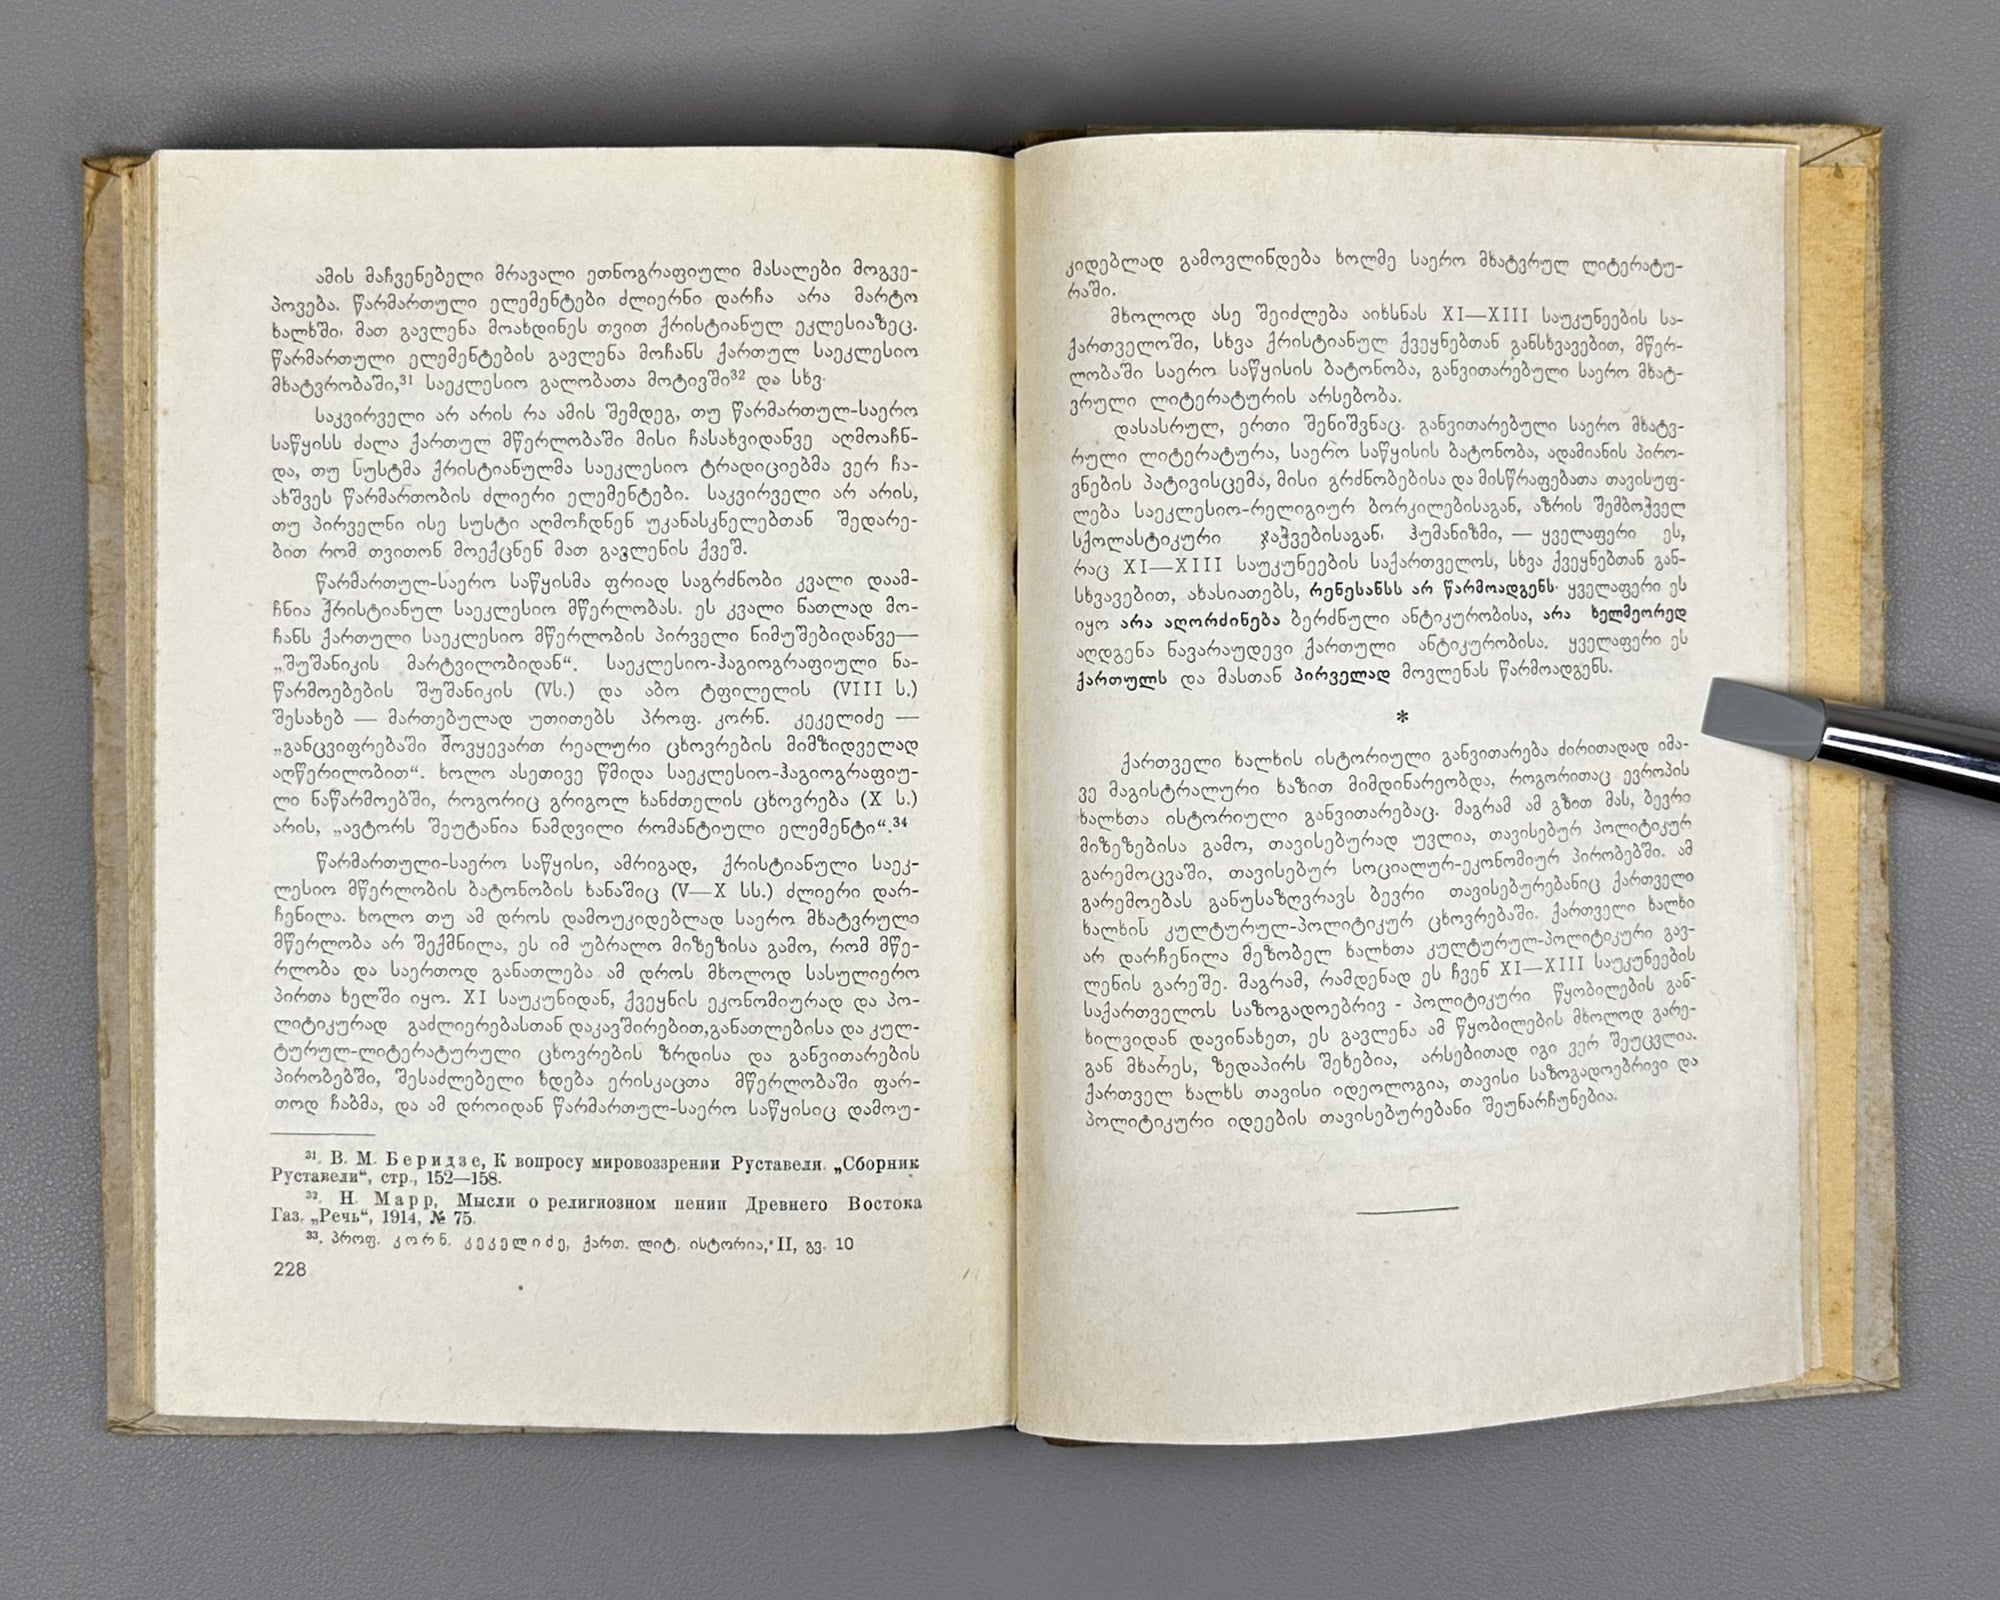 ამის მაჩვენებელი მრავალი ეთნოგრაფიული მასალები მოგვე-
პოვება. წარმართული ელემენტები ძლიერნი დარჩა არა მარტო
ხალხში. მათ გავლენა მოახდინეს თვით ქრისტიანულ ეკლესიაზეც.
წარმართული ელემენტების გავლენა მოჩანს ქართულ საეკლესიო
მხატვრობაში,³¹ საეკლესიო გალობათა მოტივში³² და სხვ.
საკვირველი არ არის რა ამის შემდეგ, თუ წარმართულ-საერო
საწყისს ძალა ქართულ მწერლობაში მისი ჩასახვიდანვე აღმოაჩნ-
და, თუ სუსტმა ქრისტიანულმა საეკლესიო ტრადიციებმა ვერ ჩა-
ახშვეს წარმართობის ძლიერი ელემენტები. საკვირველი არ არის,
თუ პირველნი ისე სუსტი აღმოჩდნენ უკანასკნელებთან შედარე-
ბით რომ თვითონ მოექცნენ მათ გავლენის ქვეშ.
წარმართულ-საერო საწყისმა ფრიად საგრძნობი კვალი დაამ-
ჩნია ქრისტიანულ საეკლესიო მწერლობას. ეს კვალი ნათლად მო-
ჩანს ქართული საეკლესიო მწერლობის პირველი ნიმუშებიდანვე—
„შუშანიკის მარტვილობიდან“. საეკლესიო-ჰაგიოგრაფიული ნა-
წარმოებების შუშანიკის (Vს.) და აბო ტფილელის (VIII ს.)
შესახებ — მართებულად უთითებს პროფ. კორნ. კეკელიძე —
„განცვიფრებაში მოვყევართ რეალური ცხოვრების მიმზიდველად
აღწერილობით“. ხოლო ასეთივე წმიდა საეკლესიო-ჰაგიოგრაფიუ-
ლი ნაწარმოებში, როგორიც გრიგოლ ხანძთელის ცხოვრება (X ს.)
არის, „ავტორს შეუტანია ნამდვილი რომანტიული ელემენტი“.³⁴
წარმართული-საერო საწყისი, ამრიგად, ქრისტიანული საეკ-
ლესიო მწერლობის ბატონობის ხანაშიც (V—X სს.) ძლიერი დარ-
ჩენილა. ხოლო თუ ამ დროს დამოუკიდებლად საერო მხატვრული
მწერლობა არ შექმნილა, ეს იმ უბრალო მიზეზისა გამო, რომ მწე-
რლობა და საერთოდ განათლება ამ დროს მხოლოდ სასულიერო
პირთა ხელში იყო. XI საუკუნიდან, ქვეყნის ეკონომიურად და პო-
ლიტიკურად გაძლიერებასთან დაკავშირებით,განათლებისა და კულ-
ტურულ-ლიტერატურული ცხოვრების ზრდისა და განვითარების
პირობებში, შესაძლებელი ხდება ერისკაცთა მწერლობაში ფარ-
თოდ ჩაბმა, და ამ დროიდან წარმართულ-საერო საწყისიც დამოუ-
³¹. В. М. Беридзе, К вопросу мировоззрении Руставели. „Сборник
Руставели“, стр., 152—158.
³². Н. Марр, Мысли о религиозном пении Древнего Востока
Газ. „Речь“, 1914, № 75.
³³. პროფ. კორნ. კეკელიძე, ქართ. ლიტ. ისტორია, II, გვ. 10
228
კიდებლად გამოვლინდება ხოლმე საერო მხატვრულ ლიტერატუ-
რაში.
მხოლოდ ასე შეიძლება აიხსნას XI—XIII საუკუნეების სა-
ქართველოში, სხვა ქრისტიანულ ქვეყნებთან განსხვავებით, მწერ-
ლობაში საერო საწყისის ბატონობა, განვითარებული საერო მხატ-
ვრული ლიტერატურის არსებობა.
დასასრულ, ერთი შენიშვნაც. განვითარებული საერო მხატვ-
რული ლიტერატურა, საერო საწყისის ბატონობა, ადამიანის პირო-
ვნების პატივისცემა, მისი გრძნობებისა და მისწრაფებათა თავისუფ-
ლება საეკლესიო-რელიგიურ ბორკილებისაგან, აზრის შემბოჭველ
სქოლასტიკური ჯაჭვებისაგან. ჰუმანიზმი, — ყველაფერი ეს,
რაც XI—XIII საუკუნეების საქართველოს, სხვა ქვეყნებთან გან-
სხვავებით, ახასიათებს, რენესანსს არ წარმოადგენს. ყველაფერი ეს
იყო არა აღორძინება ბერძნული ანტიკურობისა, არა ხელმეორედ
აღდგენა ნავარაუდევი ქართული ანტიკურობისა. ყველაფერი ეს
ქართულს და მასთან პირველად მოვლენას წარმოადგენს.
*
ქართველი ხალხის ისტორიული განვითარება ძირითადად იმა-
ვე მაგისტრალური ხაზით მიმდინარეობდა, როგორითაც ევროპის
ხალხთა ისტორიული განვითარებაც. მაგრამ ამ გზით მას, ბევრი
მიზეზებისა გამო, თავისებურად უვლია, თავისებურ პოლიტიკურ
გარემოცვაში, თავისებურ სოციალურ-ეკონომიურ პირობებში. ამ
გარემოებას განუსაზღვრავს ბევრი თავისებურებანიც ქართველი
ხალხის კულტურულ-პოლიტიკურ ცხოვრებაში. ქართველი ხალხი
არ დარჩენილა მეზობელ ხალხთა კულტურულ-პოლიტიკური გავ-
ლენის გარეშე. მაგრამ, რამდენად ეს ჩვენ XI—XIII საუკუნეების
საქართველოს საზოგადოებრივ - პოლიტიკური წყობილების გან-
ხილვიდან დავინახეთ, ეს გავლენა ამ წყობილების მხოლოდ გარე-
გან მხარეს, ზედაპირს შეხებია, არსებითად იგი ვერ შეუცვლია.
ქართველ ხალხს თავისი იდეოლოგია, თავისი საზოგადოებრივი და
პოლიტიკური იდეების თავისებურებანი შეუნარჩუნებია.